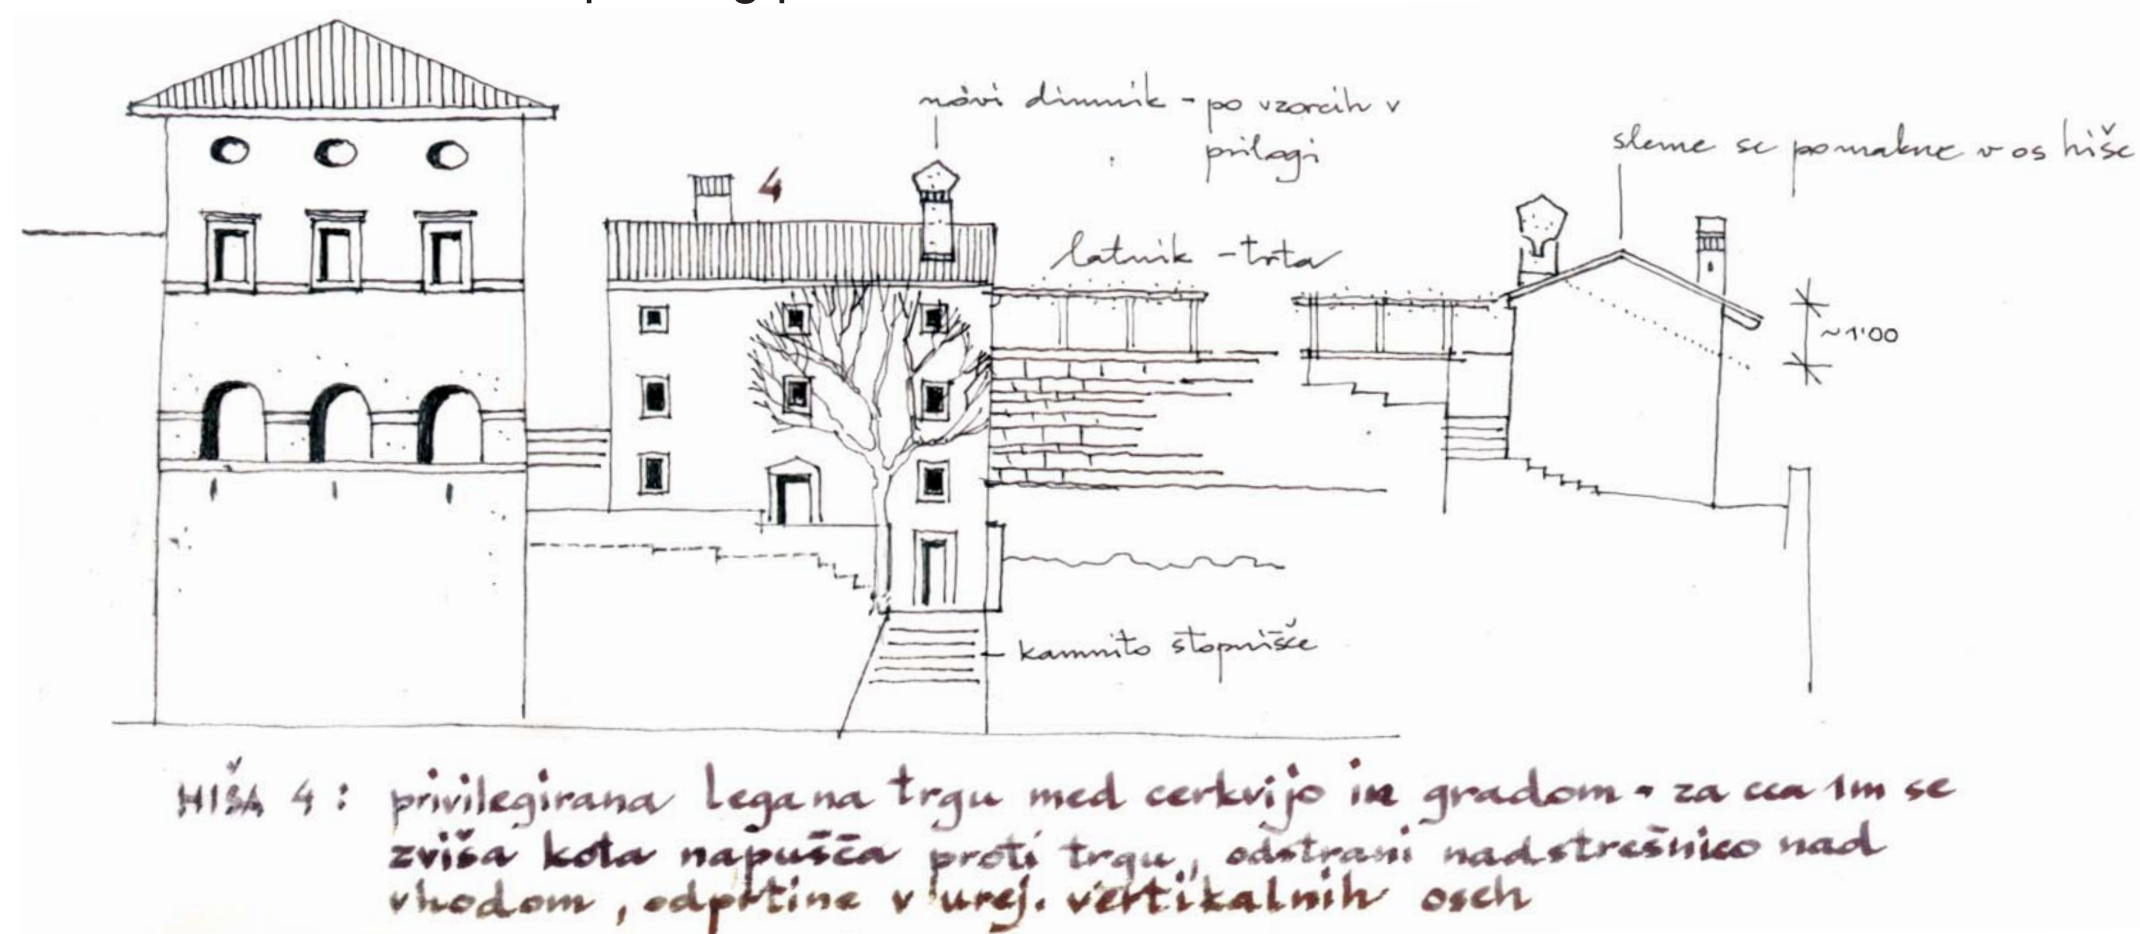 novi dimnik - po vzorcih v
prilogi
sleme se pomakne v os hiše
4
latnik - trta
~1'00
kamnito stopnišče
HIŠA 4: privilegirana lega na trgu med cerkvijo in gradom - za cca 1m se
zviša kota napušča proti trgu, odstrani nadstrešnico nad
vhodom, odprtine v urej. vertikalnih oseh